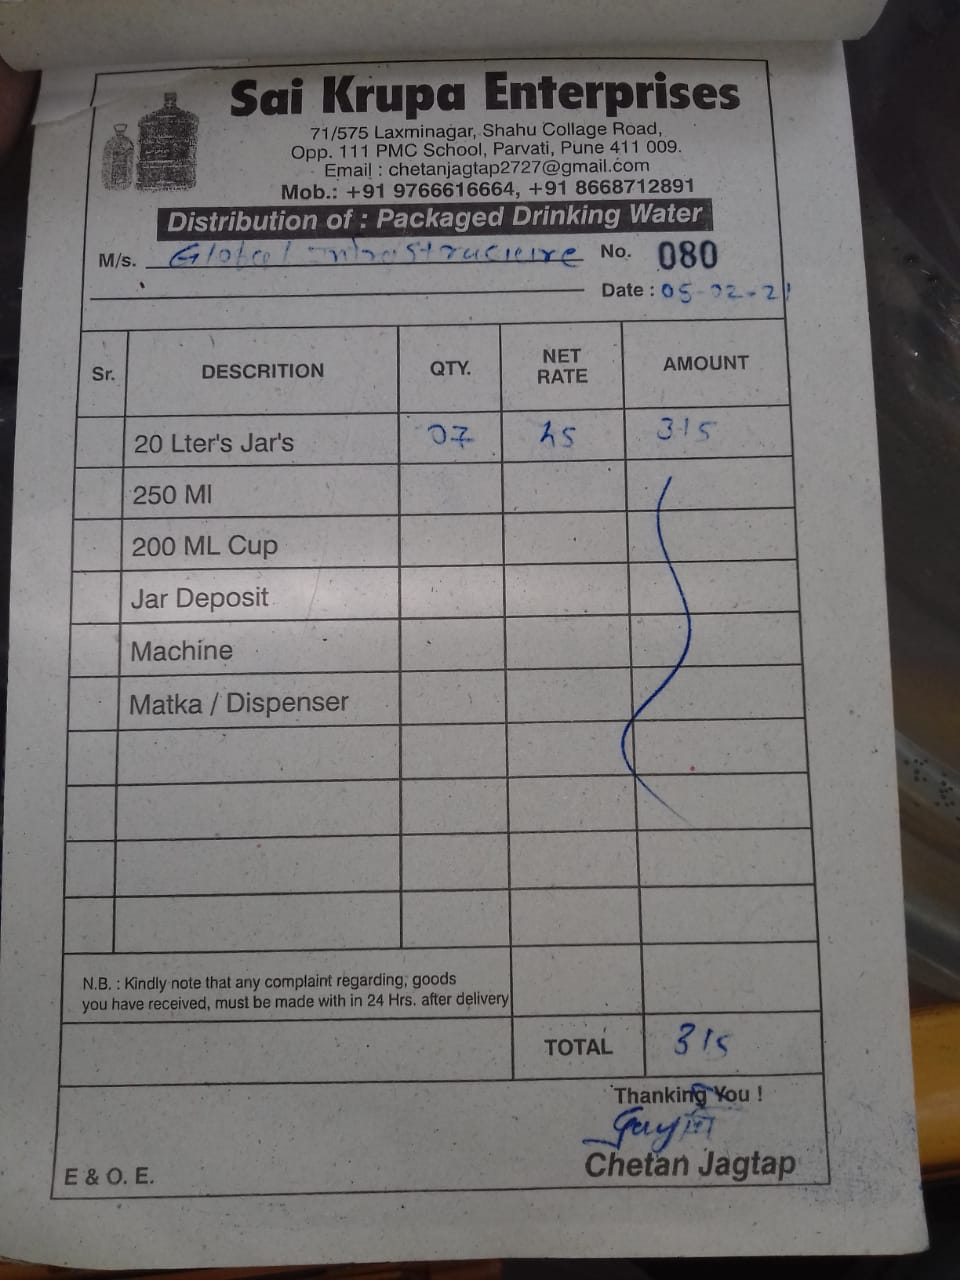 Sai Krupa Enterprises
71/575 Laxminagar, Shahu Collage Road,
Opp. 111 PMC School, Parvati, Pune 411 009.
Email : chetanjagtap2727@gmail.com
Mob.: +91 9766616664, +91 8668712891
Distribution of : Packaged Drinking Water
M/s. Global No. 080
Date : 05-02-21
Sr. DESCRITION QTY. NET RATE AMOUNT
20 Lter's Jar's 07 45 315
250 Ml
200 ML Cup
Jar Deposit
Machine
Matka / Dispenser
N.B. : Kindly note that any complaint regarding, goods
you have received, must be made with in 24 Hrs. after delivery
TOTAL 315
Thanking You !
Chetan Jagtap
E & O. E.